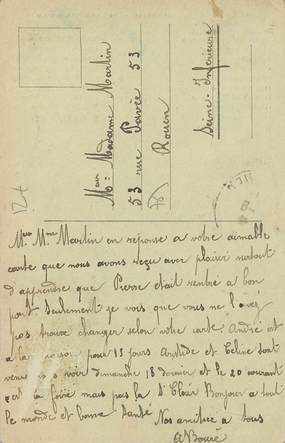 Madame Martin
53 rue Pavée 53
Rouen
Seine-Inférieure
Martin en reponse a votre aimable
carte que nous avons reçue avec plaisir surtout
d'apprendre que Pierre etait rentre a bon
port Seulement je vois que vous ne l'avez
pas trouve changer selon votre carte André est
a la pour 15 jours Aristide et Celine sont
venus voir dimanche 18 dernier et le 20 courant
la foire mais pas la St Clair Bonjour a tout
le monde et bonne Santé Nos amitiés a tous